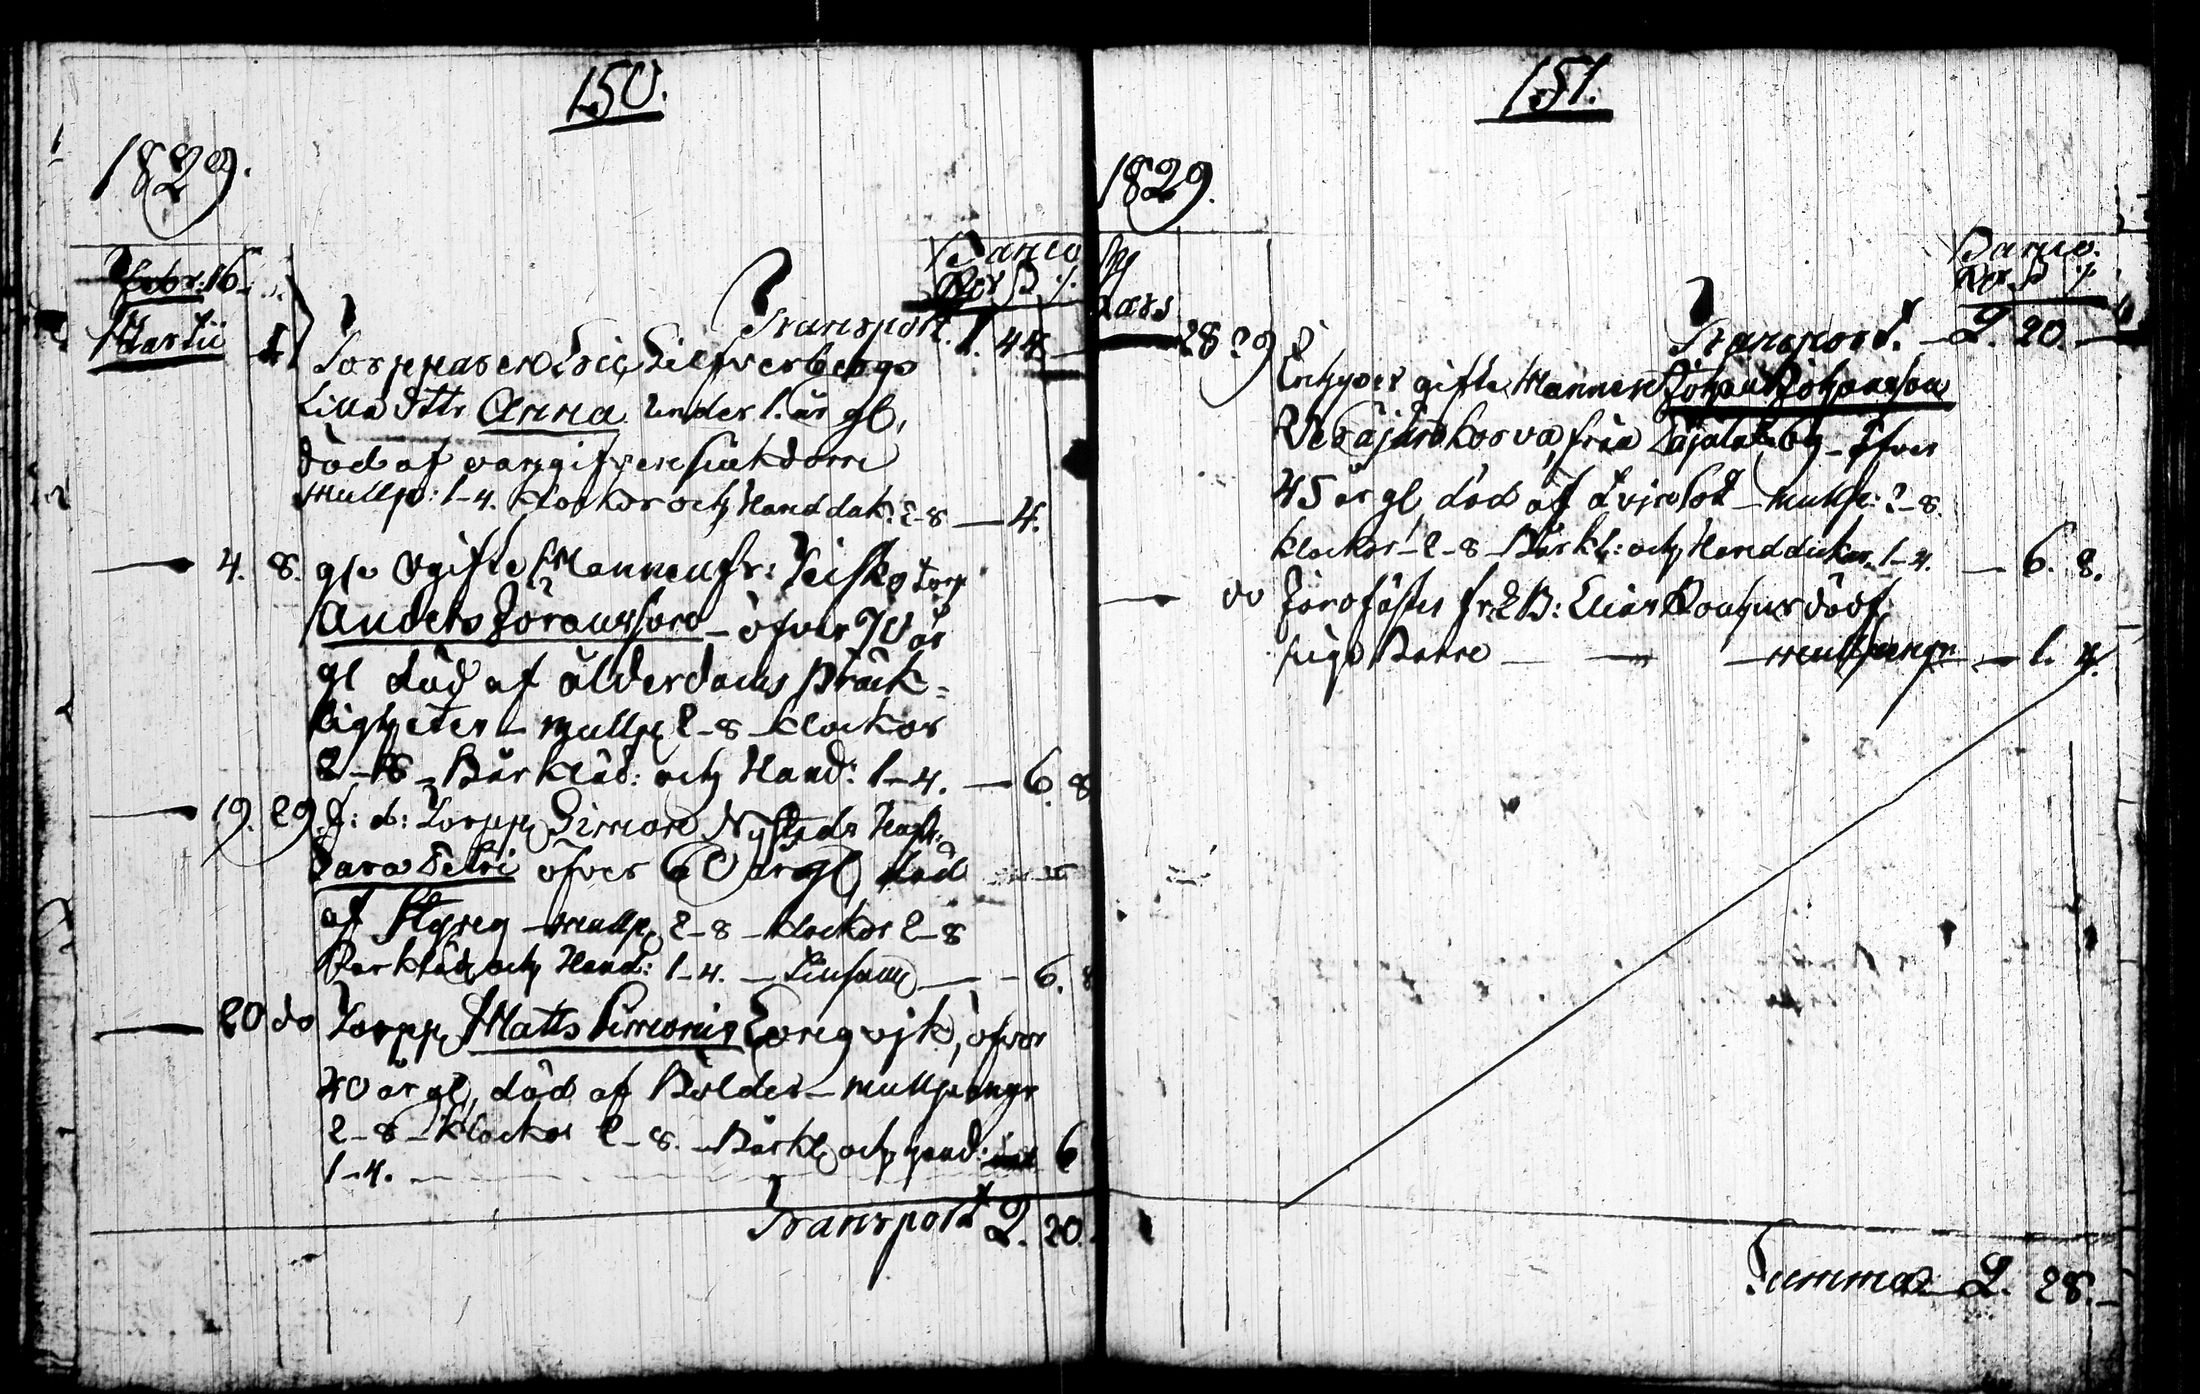 150.
1829.
Banco
Rdr ß /.
Febr: 16
Transport. 1. 44.
Martii 1 Torpparen Eric Silfverbergs
Lilla dttr Anna under 1. år gl,
död af
mullp: 1-4. klockor och Handduk: 2-8 — 4.
4. 8. gle ogifte Mannen fr:
Anders Göransson - öfver 70 år
gl död af ålderdoms bräck=
ligheter - mullp 2-8 - klockor
2-8 - Bårkläd: och Hand: 1-4. — 6. 8
19. 29. F: d: Torpp Simon Nysteds
Sara öfver 60 år gl, död
af Styng - mullp 2-8 - klockor 2-8
Barkläd och Hand: 1-4. — — 6. 8
20 do Torpp Matts Simonis Engvik, öfver
40 år gl, död af Bölder - mullpengr
2-8 - klockor 2-8. - Bårkl och hand: 6
1-4.
Transport 2. 20.
151.
1829.
Banco.
Rdr ß /.
Mars
Transport. - 2. 20. —
28. 29 Enhyses gifte Mannen Johan Johansson
från by - öfver
45 år gl död af - mullp: 2-8.
klockor - 2-8 - Bårkl: och Handduker. 1-4. — 6. 8.
do fr. B: Elias dödf.
Barn — — mullpengr — 1. 4.
Summa 2. 28. -